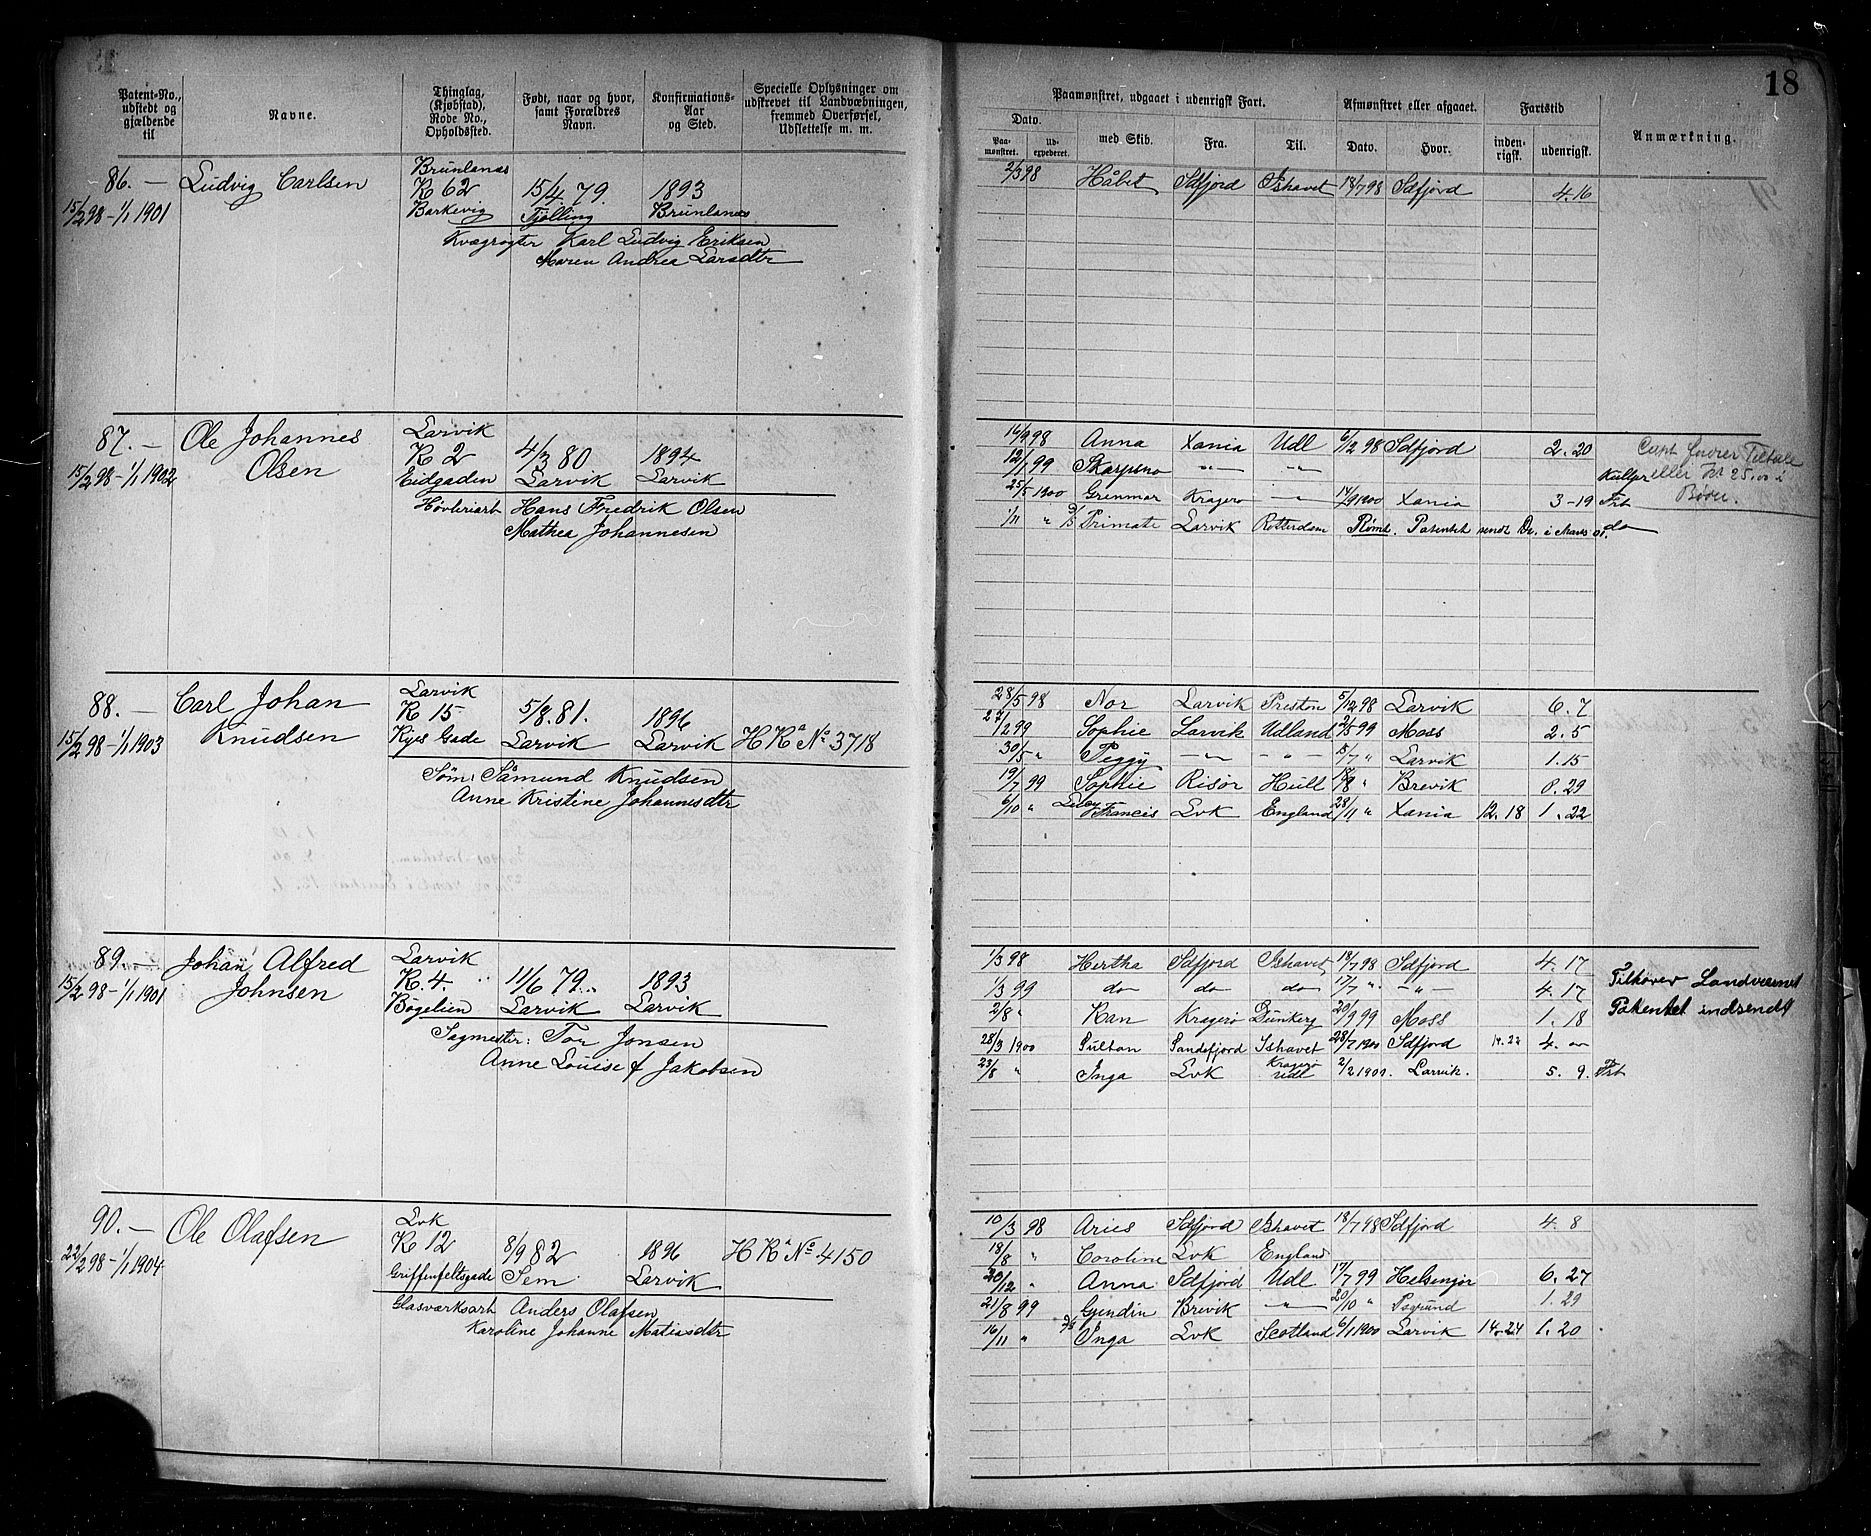 18
Patent-No., udstedt og gjældende til
Navne.
Thinglag, (Kjøbstad), Rode No., Opholdssted.
Født, naar og hvor, samt Forældres Navn.
Konfirmations-Aar og Sted.
Specielle Oplysninger om udskrevet til Landvæbningen, fremmed Overførsel, Udslettelse m. m.
Paamønstret, udgaaet i udenrigsk Fart.
Dato.
Paa-mønstret.
Ud-expederet.
med Skib.
Fra.
Til.
Afmønstret eller afgaaet.
Dato.
Hvor.
Fartstid
inden-rigsk.
udenrigsk.
Anmærkning.
86. — Ludvig Carlsen
Brunlanæs
R 62 15/4. 79. 1893
15/2 98 - 1/1 1901 Barkevig Tjølling Brunlanæs
Kvægrøgter Karl Ludvig Eriksen
Maren Andrea Larsdtr
2/3 98 Håbet Sdfjord Ishavet 18/7 98 Sdfjord 4. 16
87. — Ole Johannes Olsen
Larvik
R 2 4/3 80 1894
15/2 98 - 1/1 1902 Eidgaden Larvik Larvik
Høvleriarb Hans Fredrik Olsen
Mathea Johannesen
16/9 98 Anna Xania Udl 6/12 98 Sdfjord 2. 20
12/1 99 Skarpsno " "
25/5 1900 Grenmar Kragerø " 14/9 1900 Xania 3 - 19 Frt
1/11 " Primate Larvik Rotterdam Rømt. Patentet sendt Dr. i Marts 01. do
eller Kr 25.00 i Bøder.
88. — Carl Johan Knudsen
Larvik
R 15 5/8. 81. 1896
15/2 98 - 1/1 1903 Kijes Gade Larvik Larvik H Ra No 3718
Søm: Sämund Knudsen
Anne Kristine Johannesdtr
28/5 98 Nor Larvik Preston 5/12 98 Larvik 6. 7
27/2 99 Sophie Larvik Udland 2/5 99 Moss 2. 5
30/5 " Peggy " " 5/7 " Larvik 1. 15
19/7 99 Sophie Risör Hull 18/8 " Brevik 0. 29
6/10 " Francis Lvk England 28/11 " Xania 12. 18 1. 22
89. — Johan Alfred Johnsen
Larvik
R. 4. 11/6 79. 1893
15/2 98 - 1/1 1901 Bøgelien Larvik Larvik
Sagmester: Tor Jonsen
Anne Louise f Jakobsen
1/3 98 Hertha Sdfjord Ishavet 18/7 98 Sdfjord 4. 17
1/3 99 do do do 17/7 " - " - 4. 17
2/8 " Kan Kragerø Dunkerq 20/9 99 Moss 1. 18
28/3 1900 Sultan Sandefjord Ishavet 28/7 1900 Sdfjord 4.
23/8 " Inga Lvk Kragerø Udl 2/2 1901. Larvik. 5. 9. Frt
Tilhører Landværnet
Patentet indsendt
90. — Ole Olafsen
Lvk
R 12 8/9 82 1896 H Ra No 4150
22/2 98 - 1/1 1904 Griffenfeltsgade Sem Larvik
Glasværksarb Anders Olafsen
Karoline Johanne Matiasdtr
10/3 98 Aries Sdfjord Ishavet 18/7 98 Sdfjord 4. 8
18/8 " Caroline Lvk England
20/12 " Anna Sdfjord Udl 17/7 99 Helsingør 6. 27
21/8 99 Gjendin Brevik - " - 20/10 " Psgrund 1. 29
16/11 " Inga Lvk Scotland 6/1 1900 Larvik 14. 24 1. 20